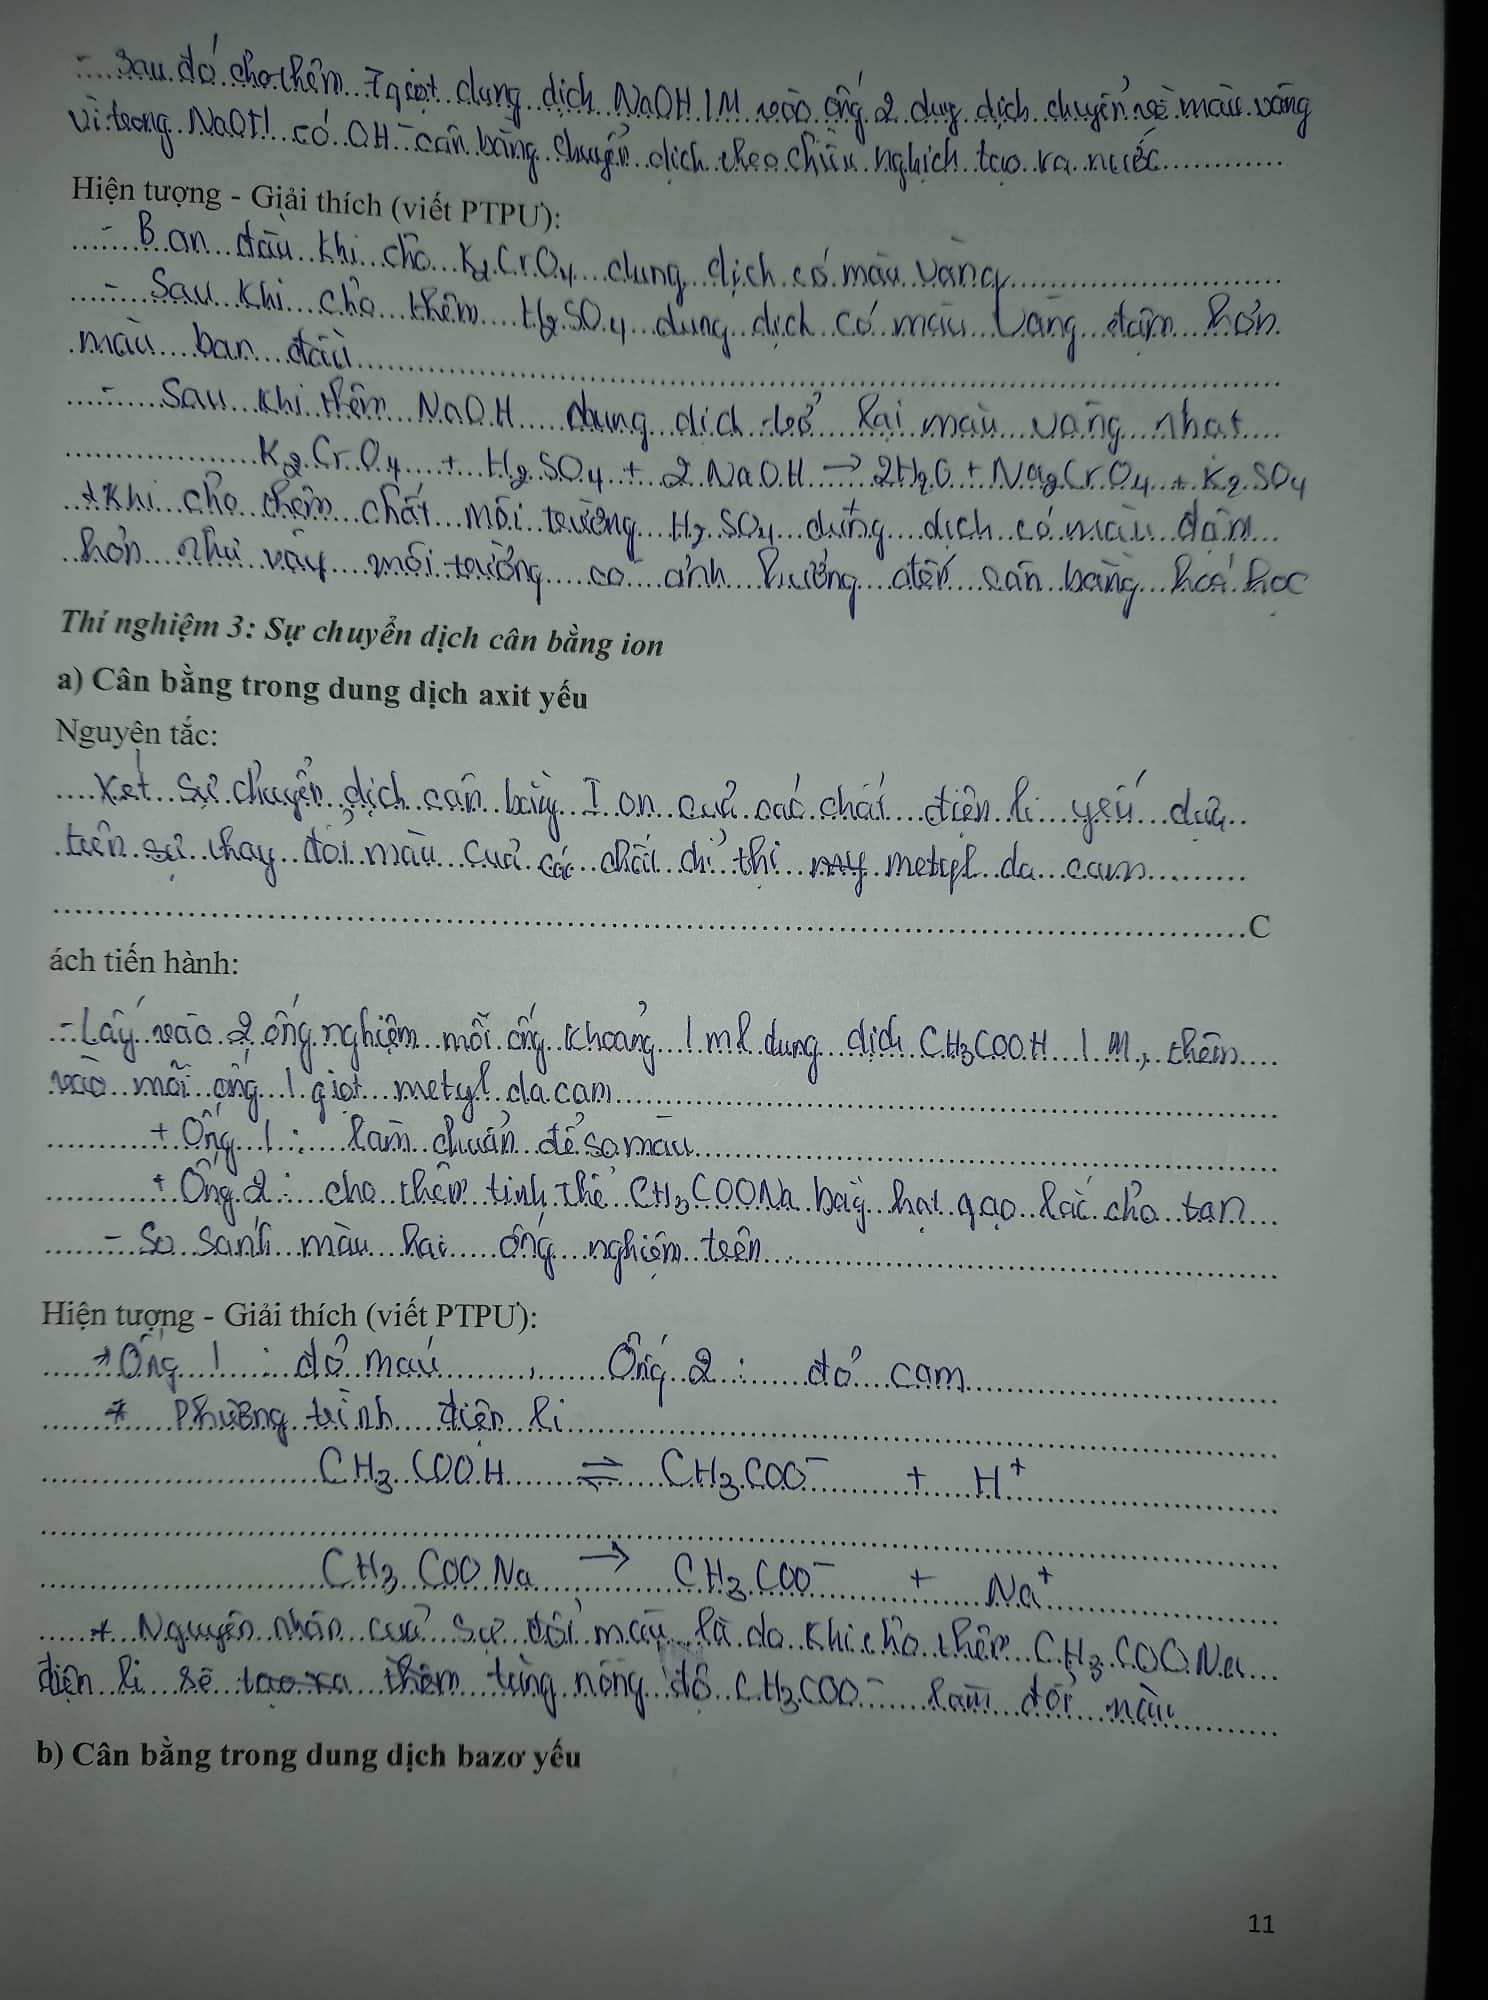 - Sau đó cho thêm 7 giọt dung dịch NaOH 1M vào ống 2 dung dịch chuyển về màu vàng
vì trong NaOH có OH⁻ cân bằng chuyển dịch theo chiều nghịch tạo ra nước
Hiện tượng - Giải thích (viết PTPƯ):
- Ban đầu khi cho K₂CrO₄ dung dịch có màu vàng
- Sau khi cho thêm H₂SO₄ dung dịch có màu vàng đậm hơn
màu ban đầu
- Sau khi thêm NaOH dung dịch trở lại màu vàng nhạt
K₂CrO₄ + H₂SO₄ + 2NaOH → 2H₂O + Na₂CrO₄ + K₂SO₄
+ Khi cho thêm chất môi trường H₂SO₄ dung dịch có màu đậm
hơn như vậy môi trường có ảnh hưởng đến cân bằng hoá học
Thí nghiệm 3: Sự chuyển dịch cân bằng ion
a) Cân bằng trong dung dịch axit yếu
Nguyên tắc:
Xét sự chuyển dịch cân bằng Ion của các chất điện li yếu dựa
trên sự thay đổi màu của các chất chỉ thị metyl da cam
C
ách tiến hành:
- Lấy vào 2 ống nghiệm mỗi ống khoảng 1 ml dung dịch CH₃COOH 1M, thêm
vào mỗi ống 1 giọt metyl da cam
+ Ống 1 : làm chuẩn để so màu
+ Ống 2 : cho thêm tinh thể CH₃COONa bằng hạt gạo lắc cho tan
- So sánh màu hai ống nghiệm trên
Hiện tượng - Giải thích (viết PTPƯ):
+ Ống 1 : đỏ máu , Ống 2 : đỏ cam
* Phương trình điện li
CH₃COOH ⇌ CH₃COO⁻ + H⁺
CH₃COONa → CH₃COO⁻ + Na⁺
* Nguyên nhân của sự đổi màu là do khi cho thêm CH₃COONa
điện li sẽ tạo ra thêm từng nồng độ CH₃COO⁻ làm đổi màu
b) Cân bằng trong dung dịch bazơ yếu
11